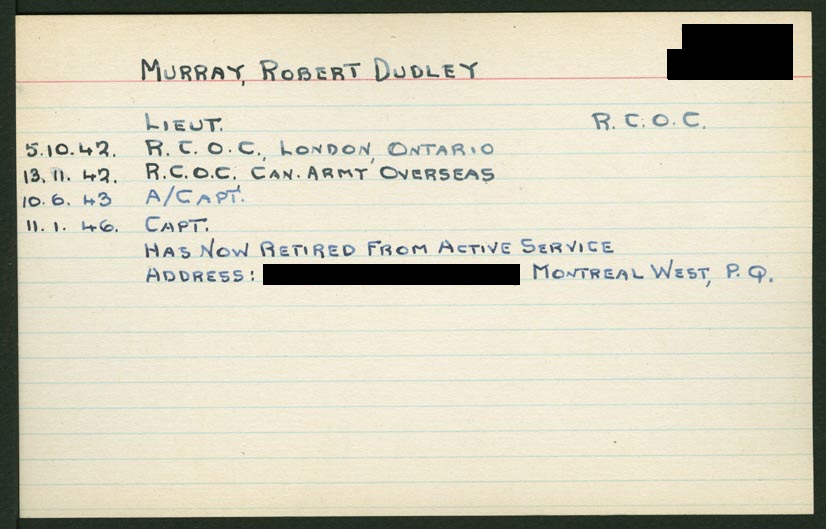 MURRAY, ROBERT DUDLEY
LIEUT. R. C. O. C.
5.10.42. R. C. O. C., LONDON, ONTARIO
13.11.42. R.C.O.C. CAN. ARMY OVERSEAS
10.6.43 A/CAPT.
11.1.46. CAPT.
HAS NOW RETIRED FROM ACTIVE SERVICE
ADDRESS: MONTREAL WEST, P.Q.